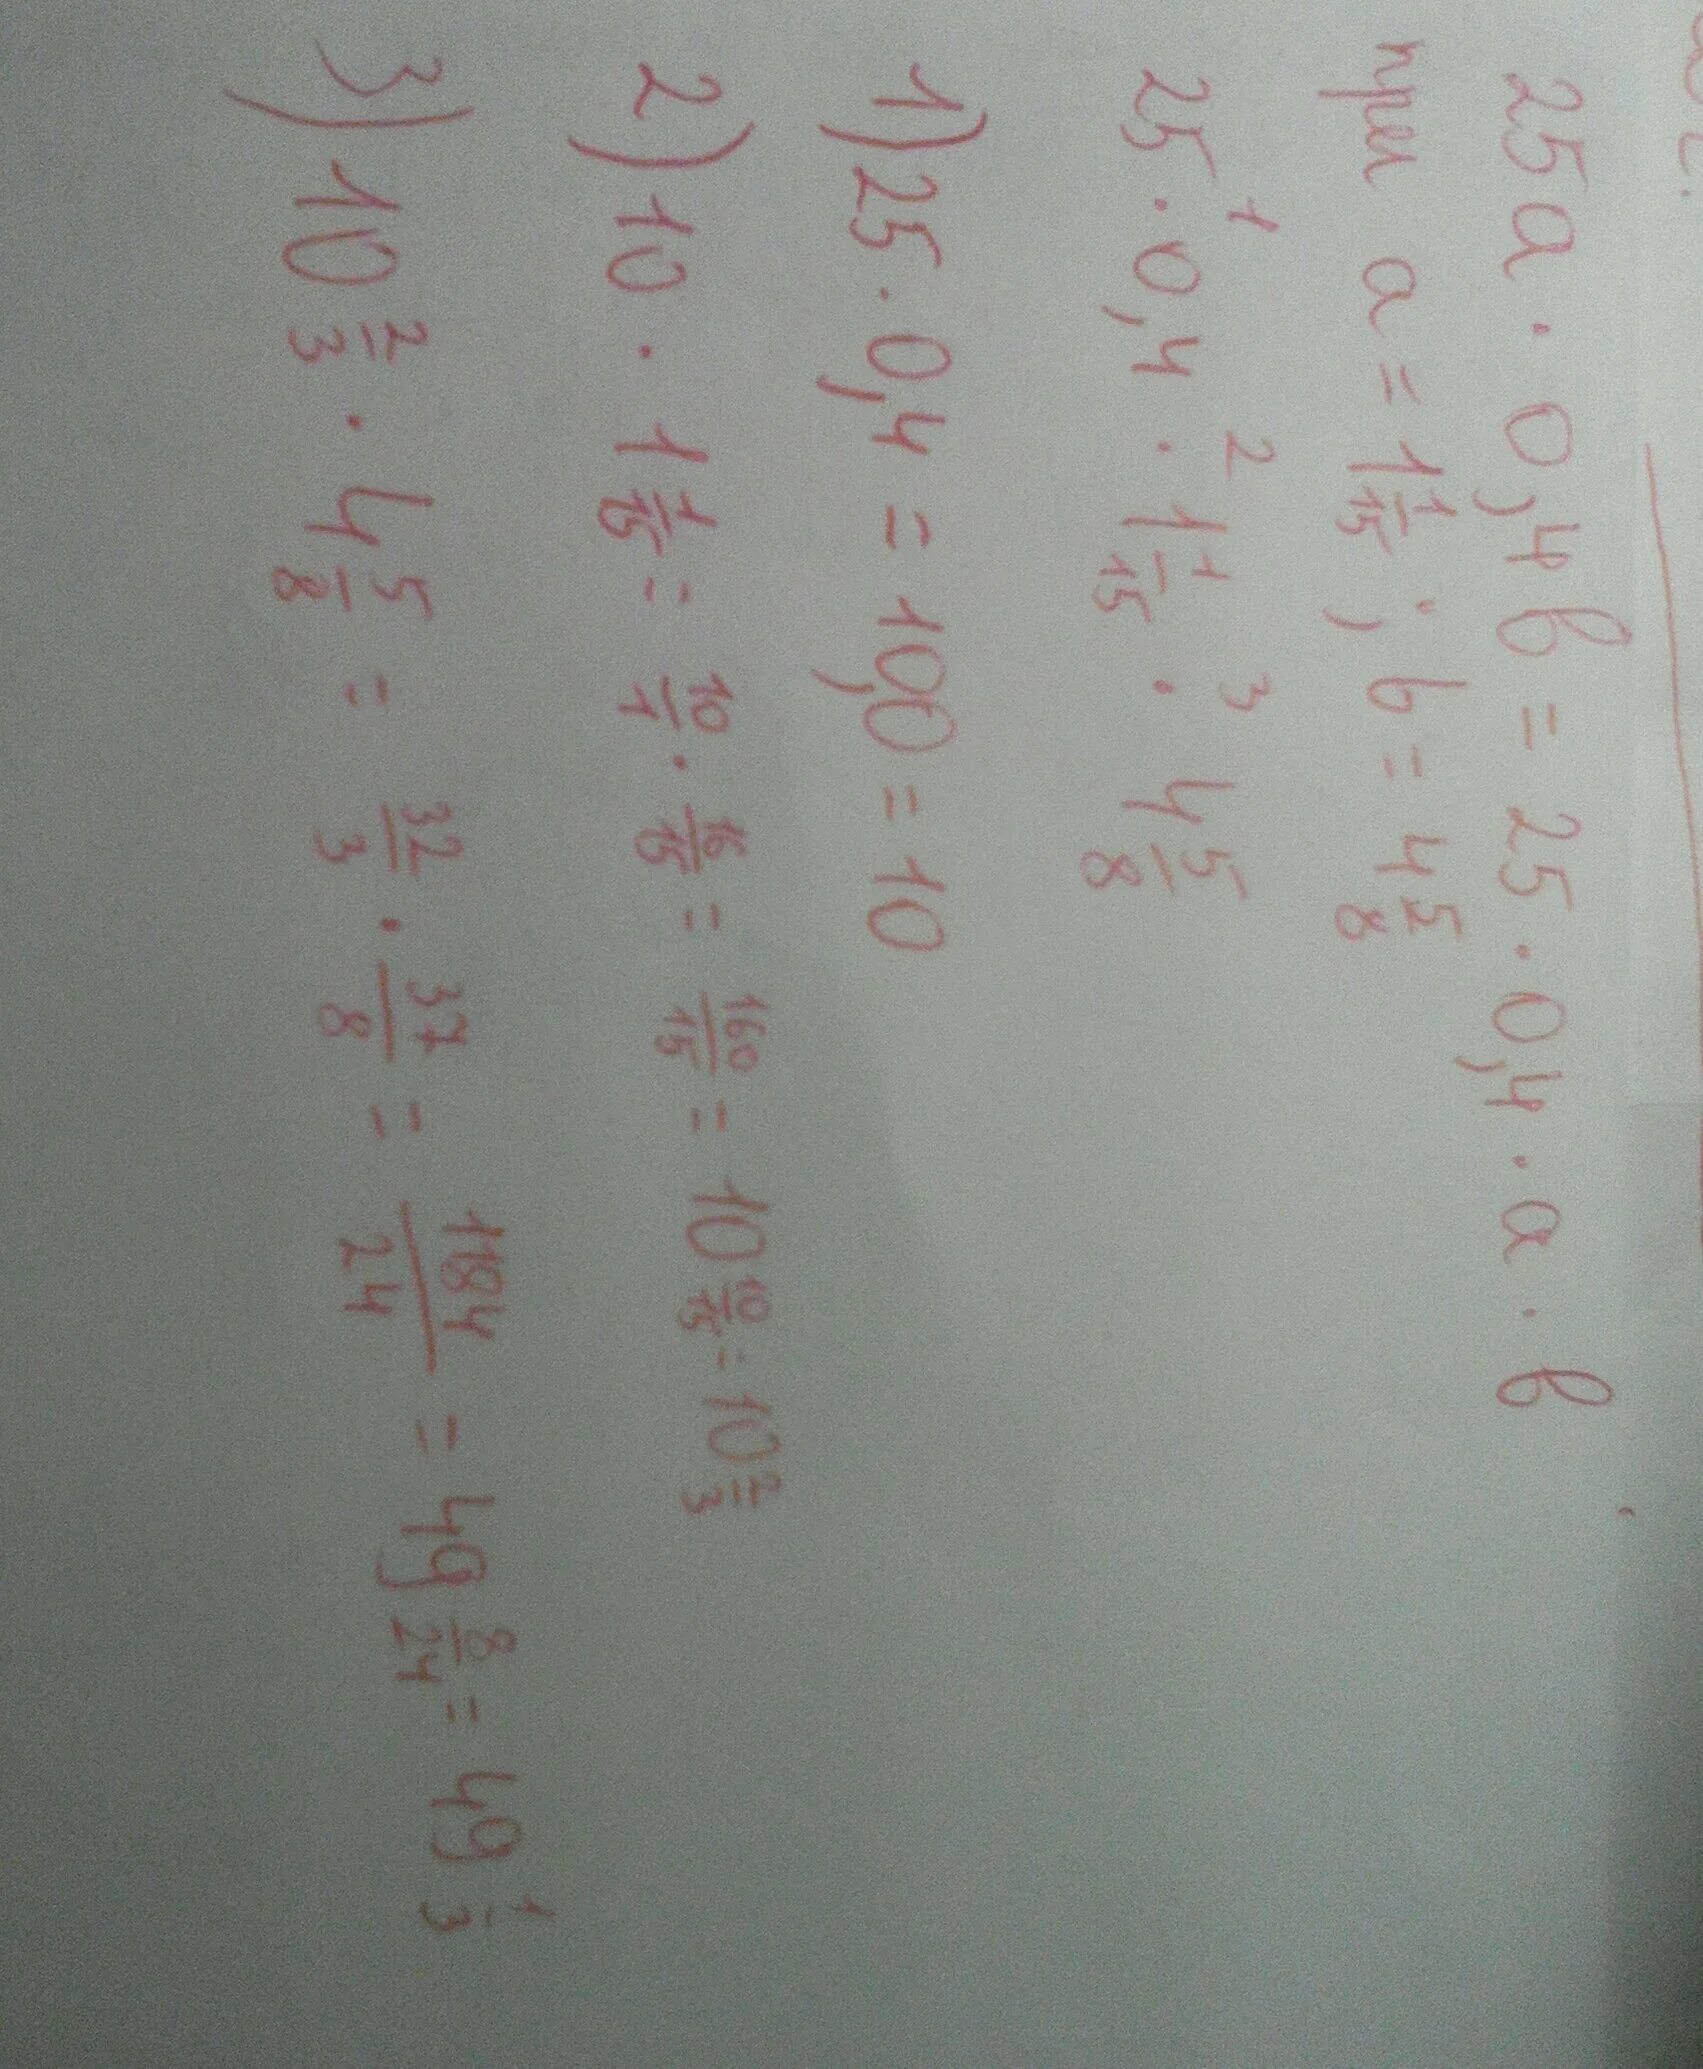 25a · 0,4b = 25 · 0,4 · a · b
при a = 1 1/15 ; b = 4 5/8
1 2 3
25 · 0,4 · 1 1/15 · 4 5/8
1) 25 · 0,4 = 10,0 = 10
2) 10 · 1 1/15 = 10/1 · 16/15 = 160/15 = 10 10/15 = 10 2/3
3) 10 2/3 · 4 5/8 = 32/3 · 37/8 = 1184/24 = 49 8/24 = 49 1/3